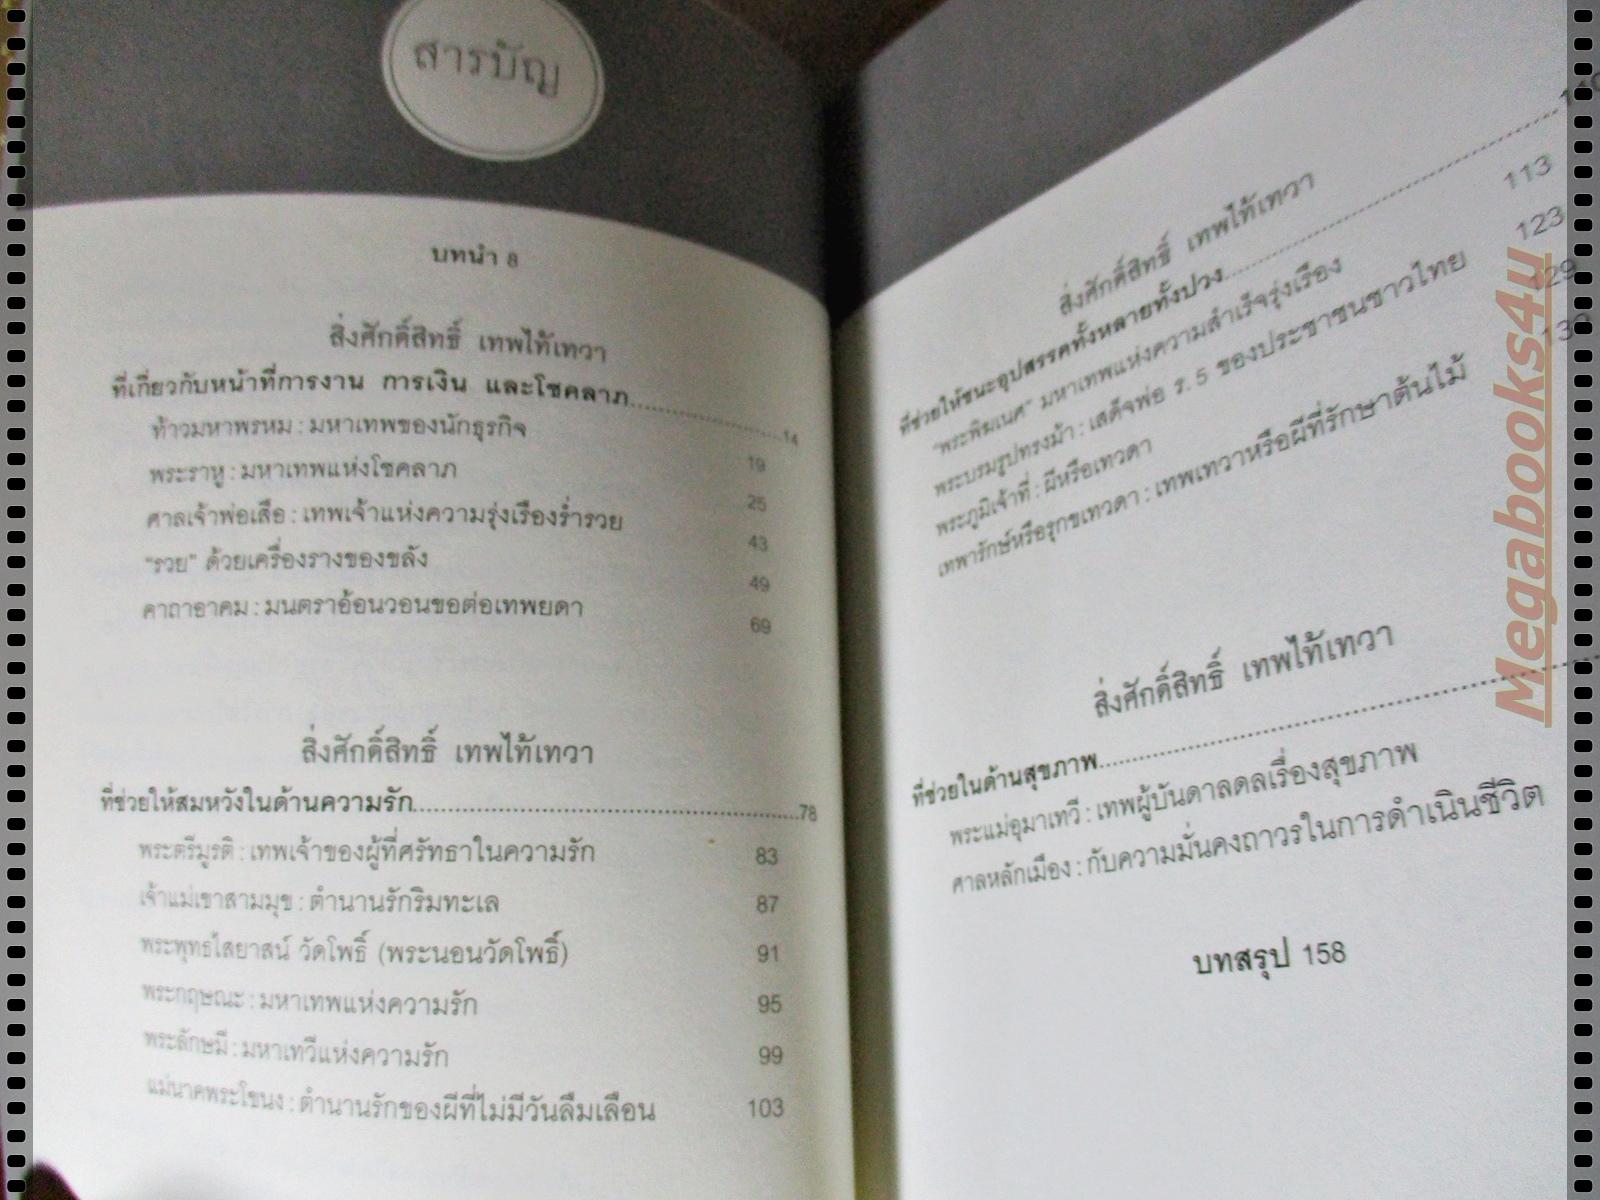 สารบัญ
บทนำ 8
สิ่งศักดิ์สิทธิ์ เทพไท้เทวา
ที่เกี่ยวกับหน้าที่การงาน การเงิน และโชคลาภ........................14
ท้าวมหาพรหม : มหาเทพของนักธุรกิจ 19
พระราหู : มหาเทพแห่งโชคลาภ 25
ศาลเจ้าพ่อเสือ : เทพเจ้าแห่งความรุ่งเรืองร่ำรวย 43
"รวย" ด้วยเครื่องรางของขลัง 49
คาถาอาคม : มนตราอ้อนวอนขอต่อเทพยดา 69
สิ่งศักดิ์สิทธิ์ เทพไท้เทวา
ที่ช่วยให้สมหวังในด้านความรัก........................78
พระตรีมูรติ : เทพเจ้าของผู้ที่ศรัทธาในความรัก 83
เจ้าแม่เขาสามมุข : ตำนานรักริมทะเล 87
พระพุทธไสยาสน์ วัดโพธิ์ (พระนอนวัดโพธิ์) 91
พระกฤษณะ : มหาเทพแห่งความรัก 95
พระลักษมี : มหาเทวีแห่งความรัก 99
แม่นาคพระโขนง : ตำนานรักของผีที่ไม่มีวันลืมเลือน 103
สิ่งศักดิ์สิทธิ์ เทพไท้เทวา
ที่ช่วยให้ชนะอุปสรรคทั้งหลายทั้งปวง........................
"พระพิฆเนศ" มหาเทพแห่งความสำเร็จรุ่งเรือง 113
พระบรมรูปทรงม้า : เสด็จพ่อ ร.5 ของประชาชนชาวไทย 123
พระภูมิเจ้าที่ : ผีหรือเทวดา 129
เทพารักษ์หรือรุกขเทวดา : เทพเทวาหรือผีที่รักษาต้นไม้
สิ่งศักดิ์สิทธิ์ เทพไท้เทวา
ที่ช่วยในด้านสุขภาพ........................
พระแม่อุมาเทวี : เทพผู้บันดาลดลเรื่องสุขภาพ
ศาลหลักเมือง : กับความมั่นคงถาวรในการดำเนินชีวิต
บทสรุป 158
Megabooks4u